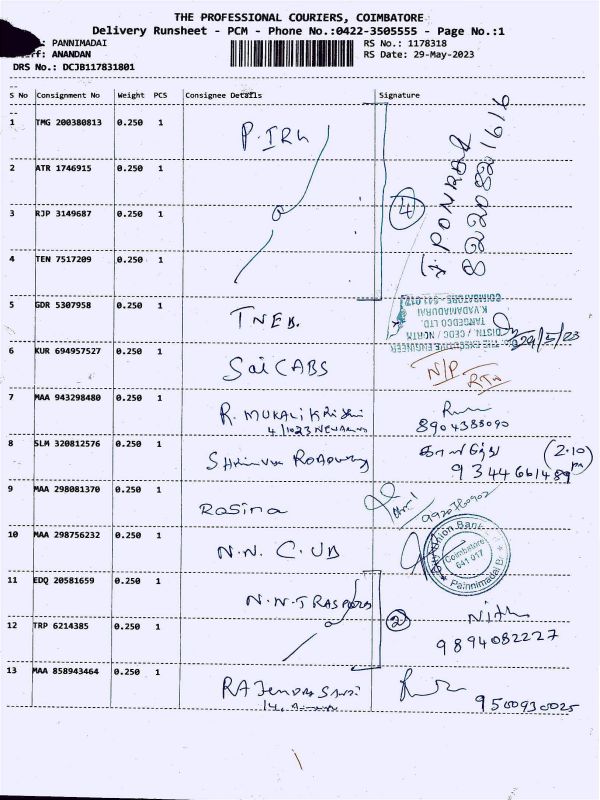 THE PROFESSIONAL COURIERS, COIMBATORE
Delivery Runsheet - PCM - Phone No.:0422-3505555 - Page No.:1
: PANNIMADAI
RS No.: 1178318
ff: ANANDAN
RS Date: 29-May-2023
DRS No.: DCJB117831801
S No Consignment No Weight PCS Consignee Details Signature
1 TMG 200380813 0.250 1
2 ATR 1746915 0.250 1
3 RJP 3149687 0.250 1 4
4 TEN 7517209 0.250 1
J. PONRAJ
8220821616
5 GDR 5307958 0.250 1 TNEB.
COIMBATORE - 641 017
K.VADAMADURAI
TANGEDCO LTD.
DISTN / CEDC / NORTH
THE EXECUTIVE ENGINEER
29/5/23
6 KUR 694957527 0.250 1 Sai CABS N/P
RTN
7 MAA 943298480 0.250 1 R. MURALI
8904383090
8 SLM 320812576 0.250 1 (2.10 pm)
9344661489
9 MAA 298081370 0.250 1 Rosina 9920780902
10 MAA 298756232 0.250 1 N.N. C. UB
Union Bank
Coimbatore
641 017
Pannimadai Br.
11 EDQ 20581659 0.250 1
12 TRP 6214385 0.250 1 2
9894082227
13 MAA 858943464 0.250 1
9500930025